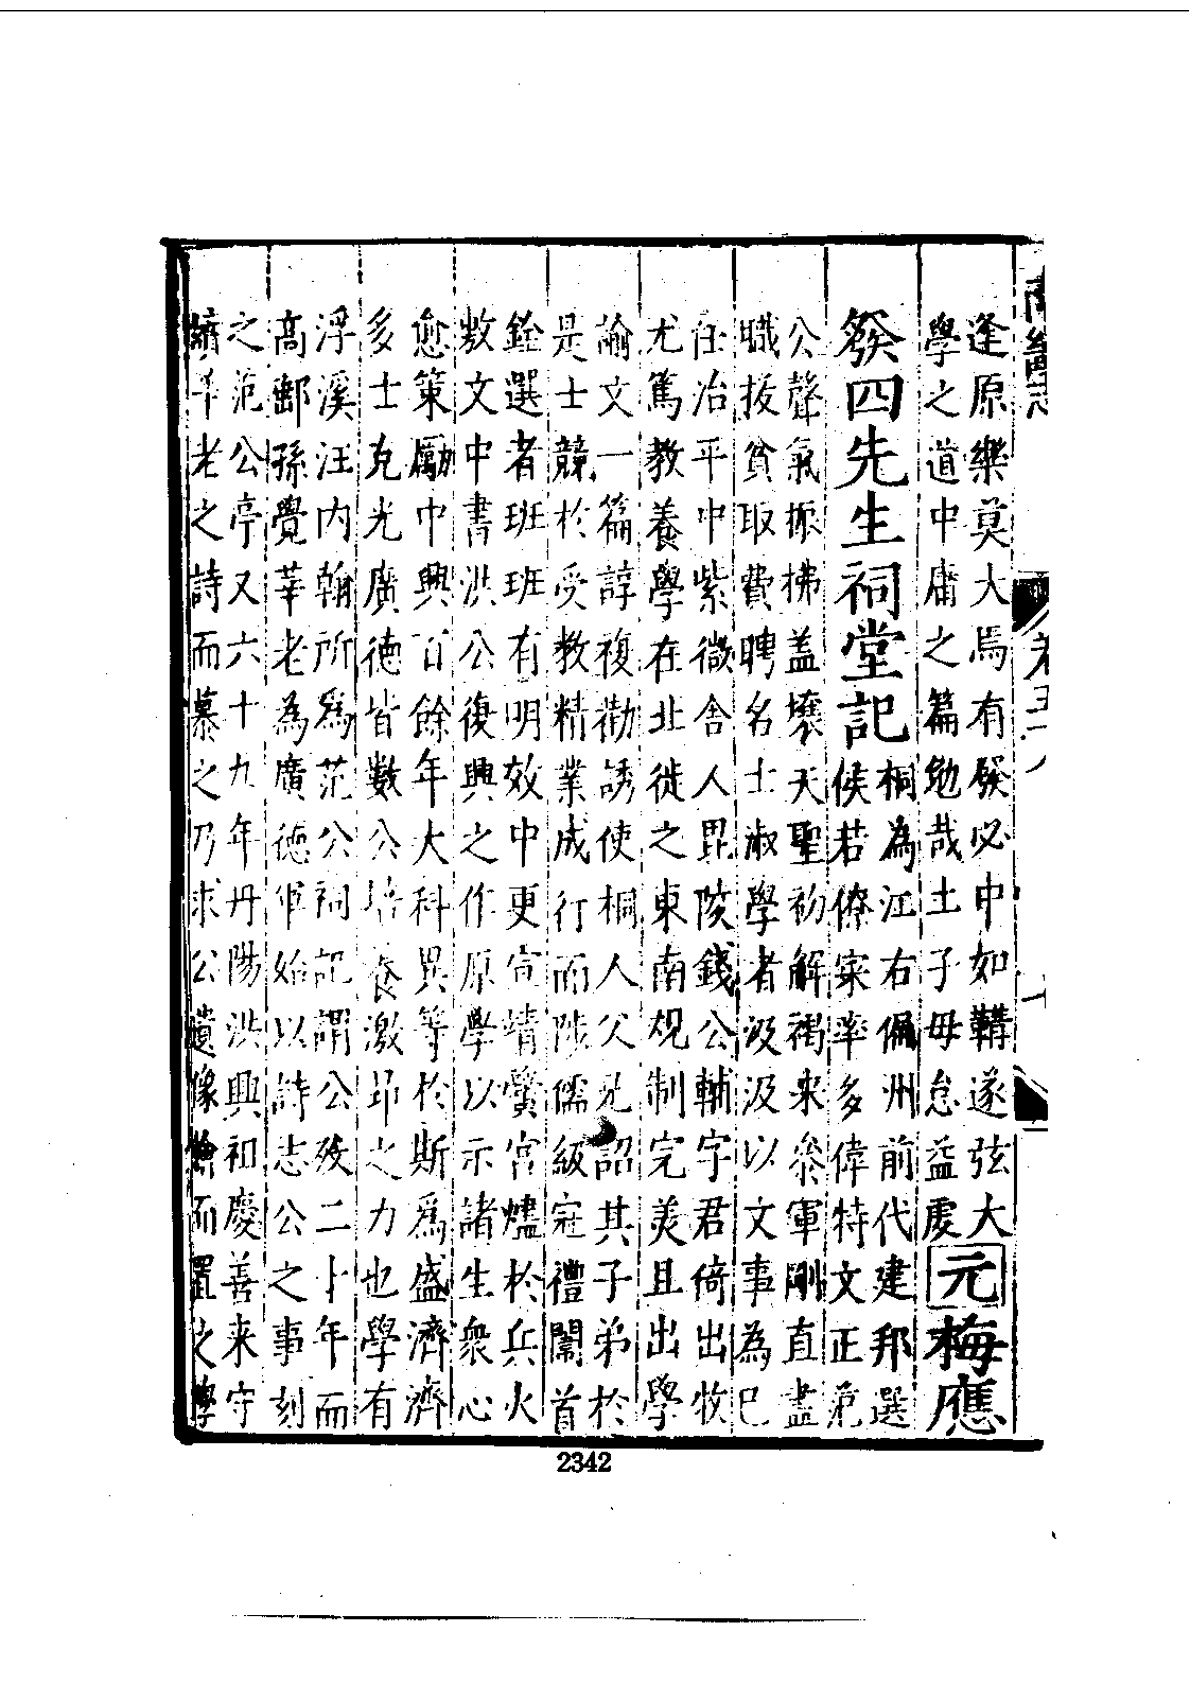 逢原樂莫大焉有發必中如鞲遂弦大
學之道中庸之篇勉哉士子毋怠益虔
元 梅應
發四先生祠堂記
桐為江右偏州前代建邦選
侯若僚寀率多偉特文正范
公聲氣振拂蓋壤天聖初解褐来叅軍剛直盡
職拔貧取費聘名士淑學者汲汲以文事為已
任治平中紫微舍人毘陵錢公輔字君倚出牧
尤篤教養學在北徙之東南規制完美且出學
諭文一篇諄複勸誘使桐人父兄詔其子弟於
是士競於受教精業成行而陟儒級冠禮闈首
銓選者班班有明效中更宣靖黌宫燼於兵火
敷文中書洪公復興之作原學以示諸生衆心
愈策勵中興百餘年大科異等於斯爲盛濟濟
多士克光廣德皆數公培養激昻之力也學有
浮溪汪内翰所爲范公祠記謂公殁二十年而
高郵孫覺莘老為廣德軍始以詩志公之事刻
之范公亭又六十九年丹陽洪興祖慶善来守
莘老之詩而慕之乃求公遺像繪而置之學
2342